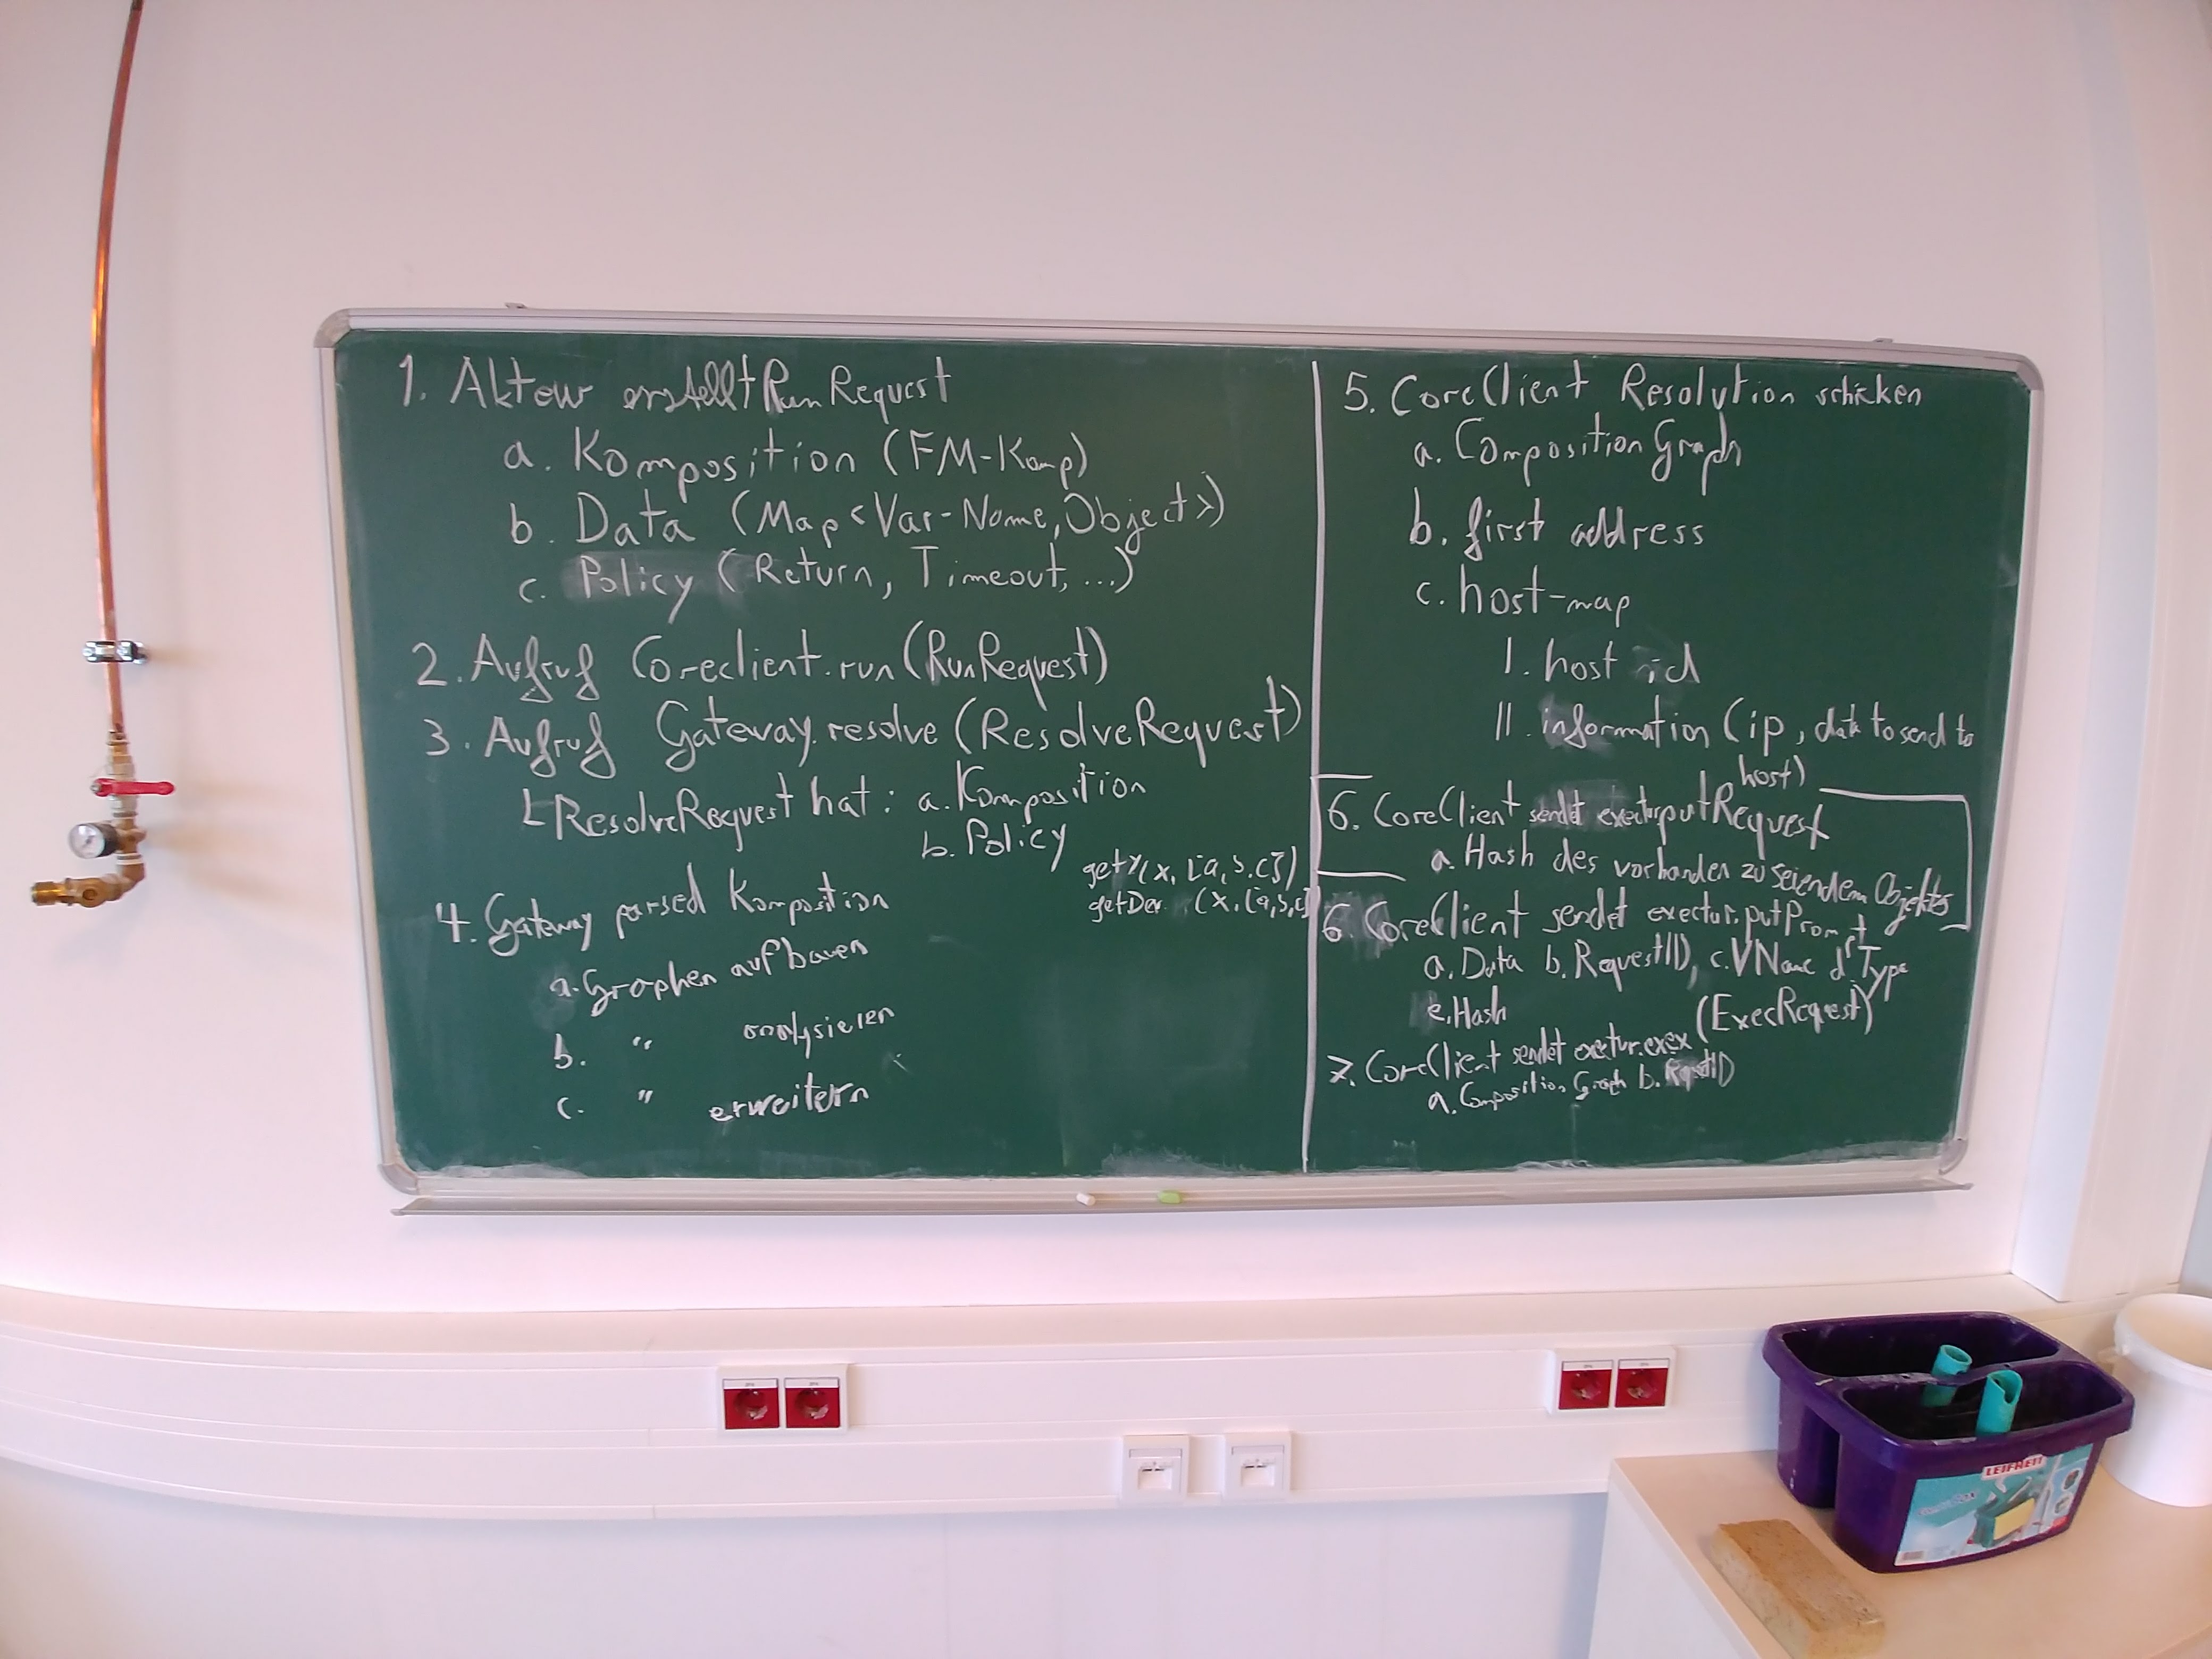 1. Akteur erstellt RunRequest
a. Komposition (FM-Komp)
b. Data (Map<Var-Name, Object>)
c. Policy (Return, Timeout, ...)
2. Aufruf Coreclient.run(RunRequest)
3. Aufruf Gateway.resolve(ResolveRequest)
ResolveRequest hat: a. Komposition
b. Policy
getY(x, [a,b,c])
getDer (x, [a,b,c]
4. Gateway parsed Komposition
a. Graphen aufbauen
b. " analysieren
c. " erweitern
5. CoreClient Resolution schicken
a. CompositionGraph
b. first address
c. host-map
I. host id
II. information (ip, data to send to
host)
6. CoreClient sendet exector.putRequest
a. Hash des vorhanden zu seiendem Objektes
6. CoreClient sendet exectur.putPrompt
a. Data b. RequestID, c. VName d. Type
e. Hash
(ExecRequest)
7. CoreClient sendet exectur.exex
a. Composition Graph b. RequestID
LEIFHEIT